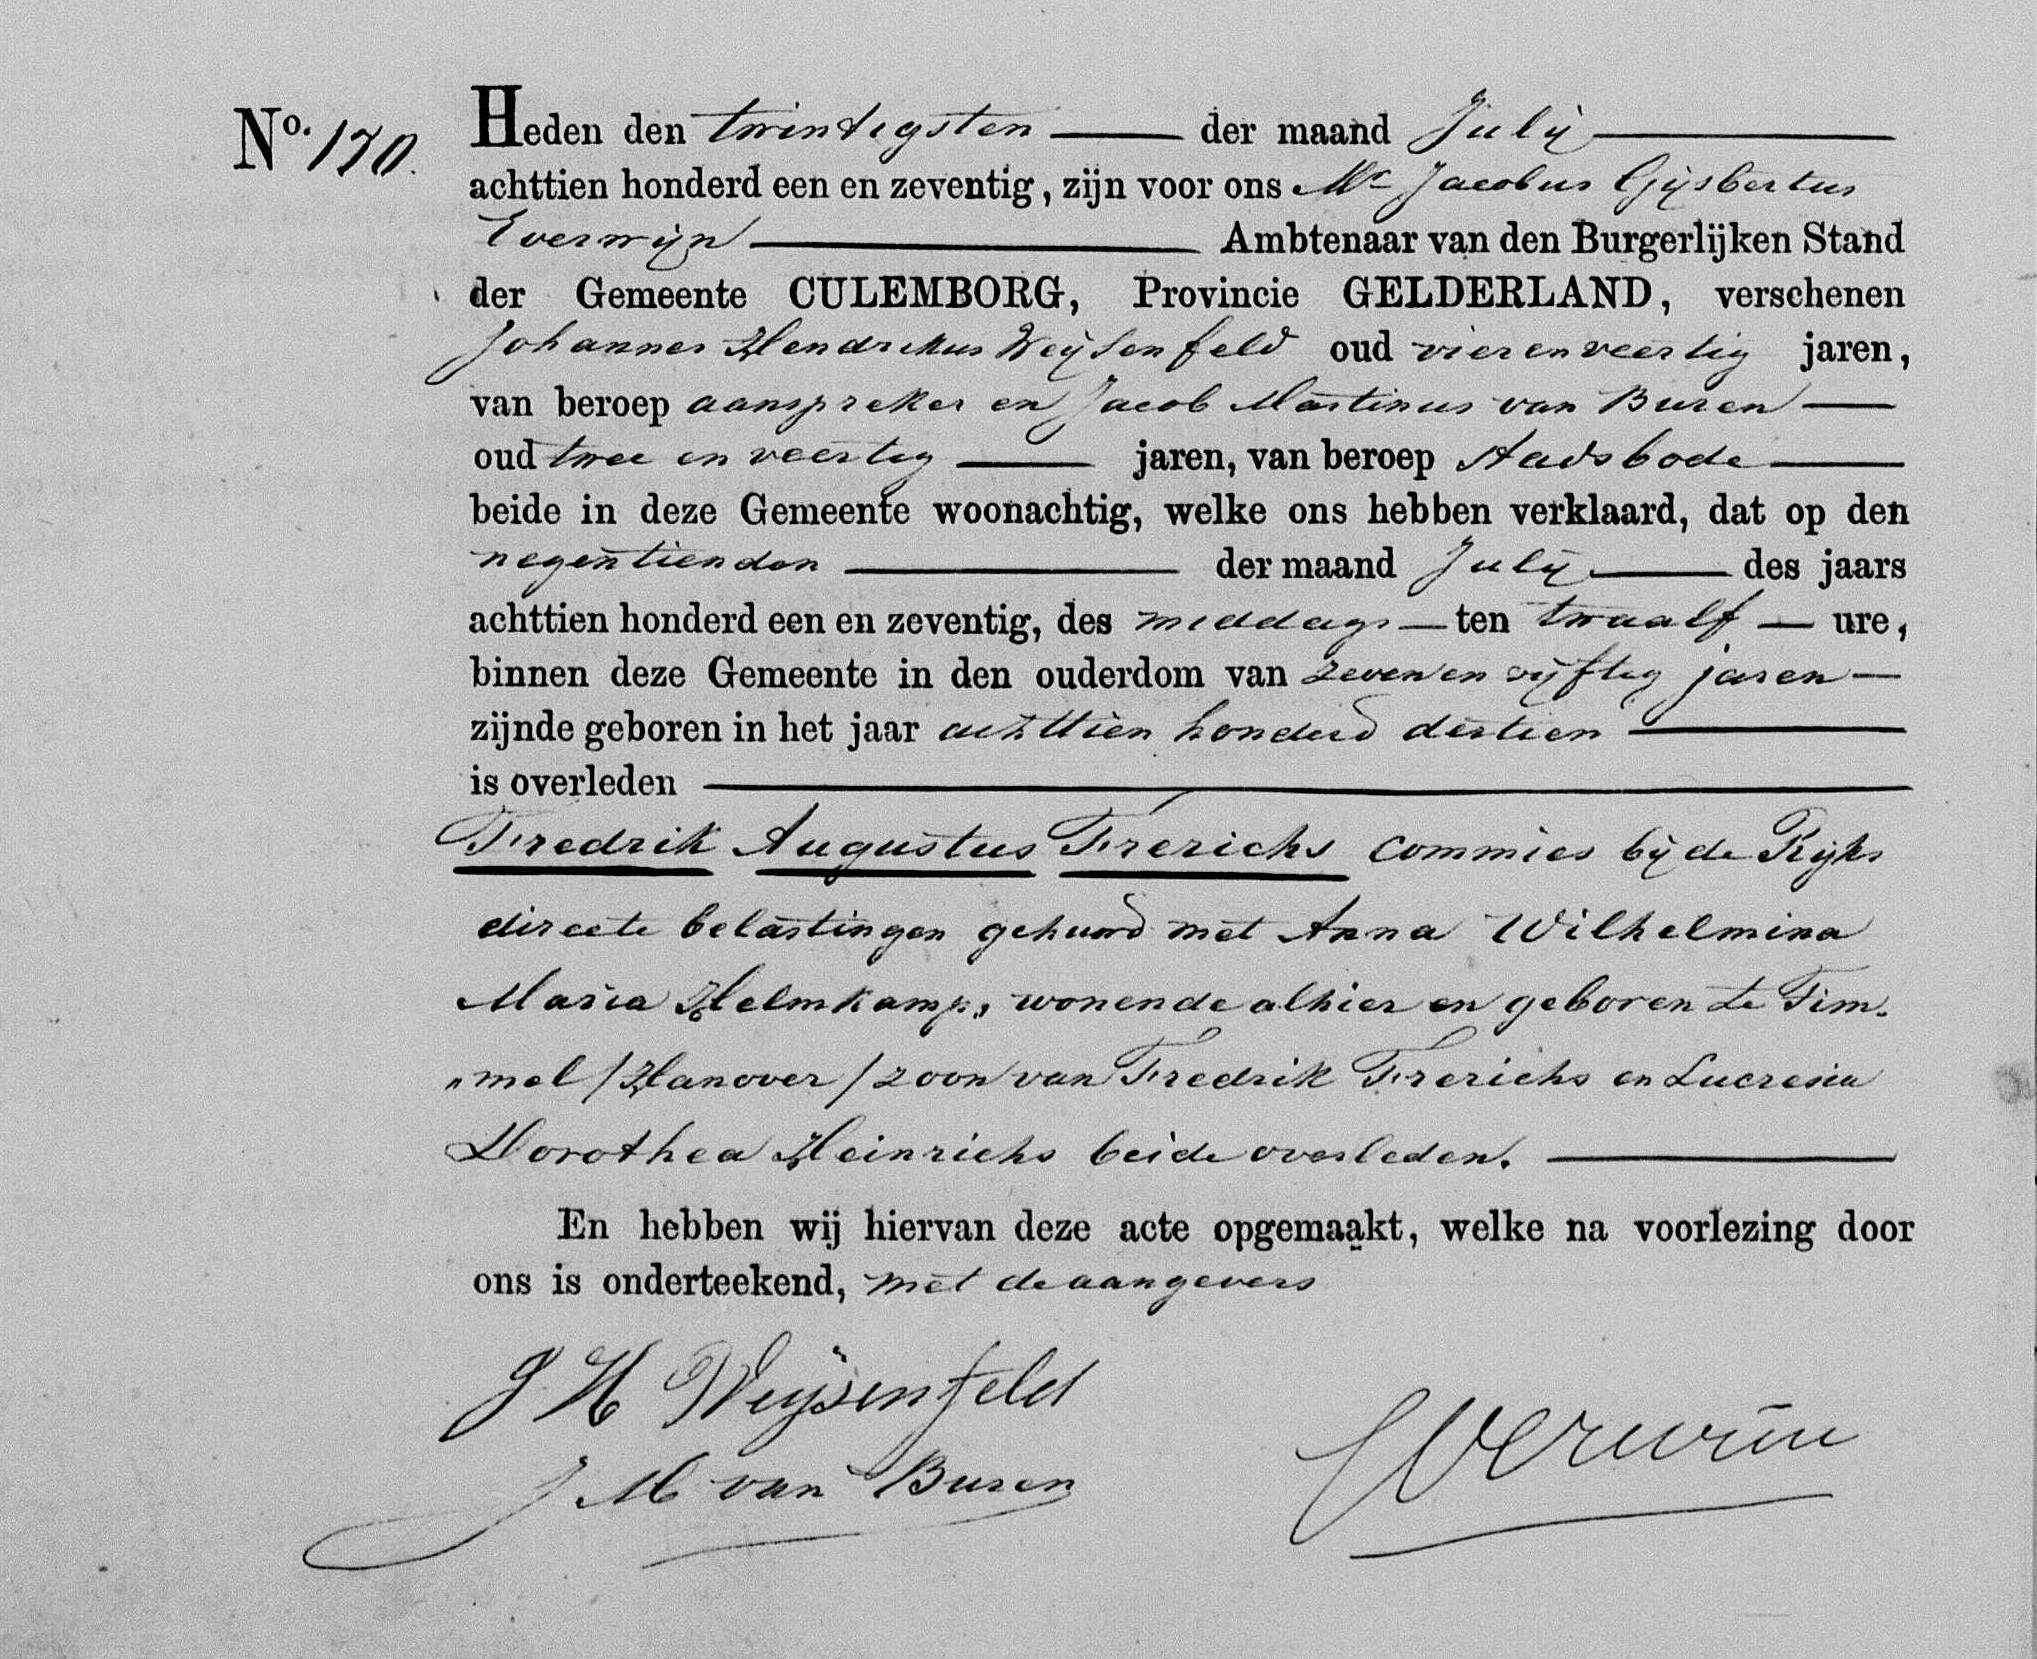 No. 170.
Heden den twintigsten der maand Julij
achttien honderd een en zeventig, zijn voor ons Mr Jacobus Gijsbertus
Everwijn Ambtenaar van den Burgerlijken Stand
der Gemeente CULEMBORG, Provincie GELDERLAND, verschenen
Johannes Hendrikus Weijsenfeld oud vierenveertig jaren,
van beroep aanspreker en Jacob Martinus van Buren
oud twee en veertig jaren, van beroep stadsbode
beide in deze Gemeente woonachtig, welke ons hebben verklaard, dat op den
negentienden der maand Julij des jaars
achttien honderd een en zeventig, des middags ten twaalf ure,
binnen deze Gemeente in den ouderdom van zeven en vijftig jaren
zijnde geboren in het jaar achttien honderd dertien
is overleden
Fredrik Augustus Frerichs commies bij de Rijks
directe belastingen gehuwd met Anna Wilhelmina
Maria Helmkamp, wonende alhier en geboren te Tim-
"mel /Hanover/ zoon van Fredrik Frerichs en Lucresia
Dorothea Heinrichs beide overleden.
En hebben wij hiervan deze acte opgemaakt, welke na voorlezing door
ons is onderteekend, met de aangevers
J H Weijsenfeld
J M van Buren
Everwijn